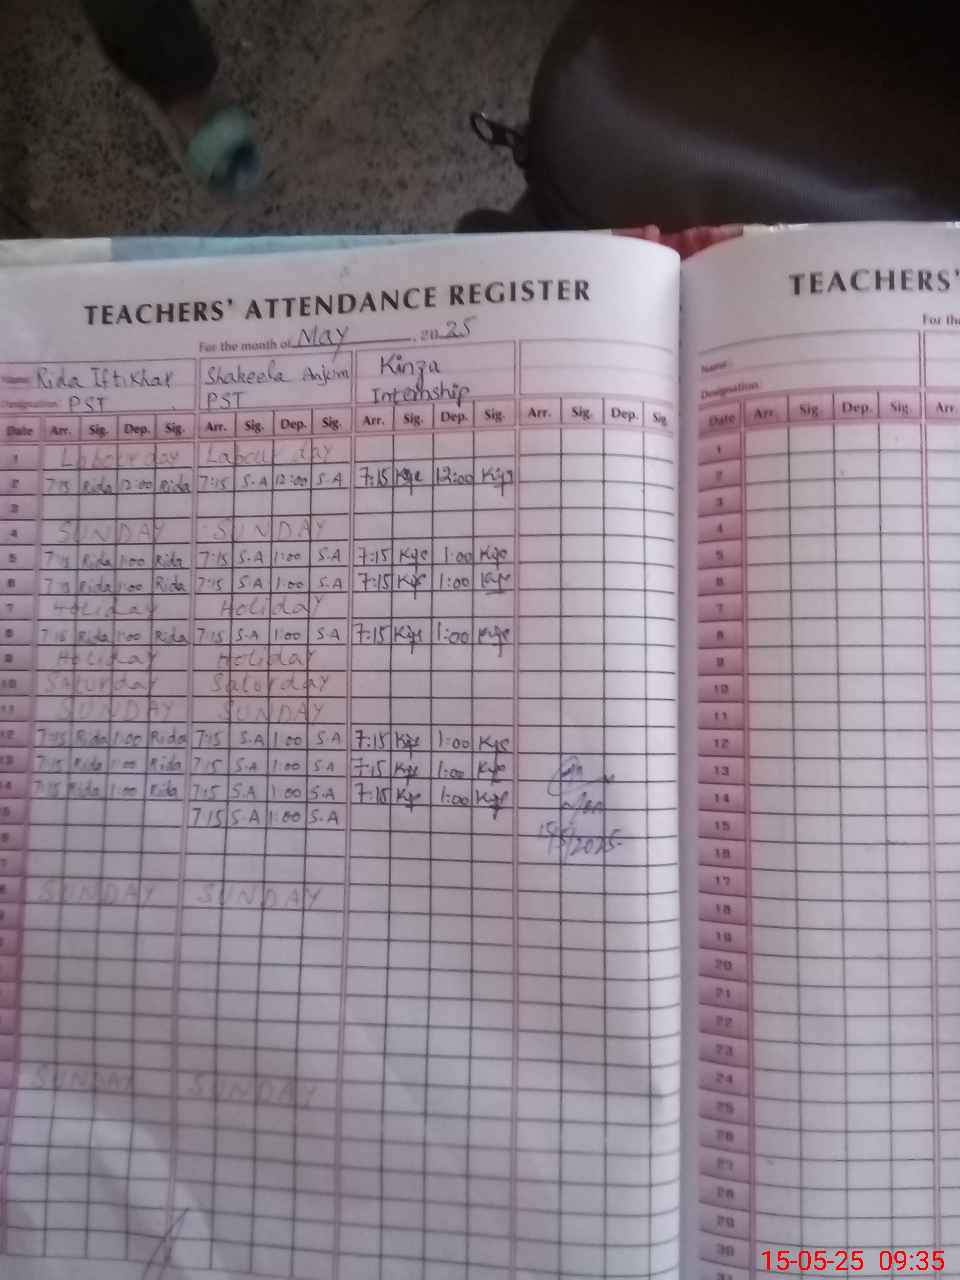 TEACHERS' ATTENDANCE REGISTER
For the month of May, 2025
Name: Rida Iftikhar Shakeela Anjum Kinza
Designation: PST PST Internship
Date Arr. Sig. Dep. Sig. Arr. Sig. Dep. Sig. Arr. Sig. Dep. Sig. Arr. Sig. Dep. Sig.
1 Labour day Labour day
2 7:15 Rida 12:00 Rida 7:15 S.A 12:00 S.A 7:15 12:00
3
4 SUNDAY SUNDAY
5 7:15 Rida 1:00 Rida 7:15 S.A 1:00 S.A 7:15 1:00
6 7:15 Rida 1:00 Rida 7:15 S.A 1:00 S.A 7:15 1:00
7 Holiday Holiday
8 7:15 Rida 1:00 Rida 7:15 S.A 1:00 S.A 7:15 1:00
9 Holiday Holiday
10 Saturday Saturday
11 SUNDAY SUNDAY
12 7:15 Rida 1:00 Rida 7:15 S.A 1:00 S.A 7:15 1:00
13 7:15 Rida 1:00 Rida 7:15 S.A 1:00 S.A 7:15 1:00
14 7:15 Rida 1:00 Rida 7:15 S.A 1:00 S.A 7:15 1:00
7:15 S.A 1:00 S.A
15/5/2025
SUNDAY SUNDAY
SUNDAY SUNDAY
TEACHERS'
For the
Name:
Designation:
Date Arr. Sig. Dep. Sig. Arr
1
2
3
4
5
6
7
8
9
10
11
12
13
14
15
16
17
18
19
20
21
22
23
24
25
26
27
28
29
30
31
15-05-25 09:35